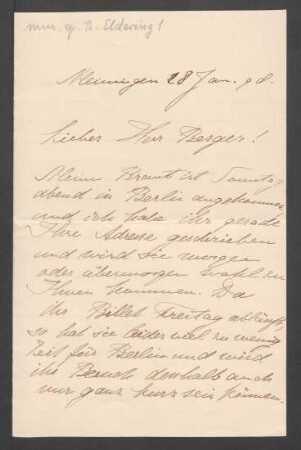 mus. gr. B. Eldering!
Meiningen 28 Jan. 98.
Lieber Herr Berger!
Meine Braut ist Sonntag
abend in Berlin angekommen
und ich habe ihr gerade
Ihre Adresse geschrieben
und wird sie morgen
oder übermorgen wohl zu
Ihnen kommen. Da
ihr Billet Freitag abläuft,
so hat sie leider viel zu wenig
Zeit für Berlin und wird
ihr Besuch deshalb auch
nur ganz kurz sein können.